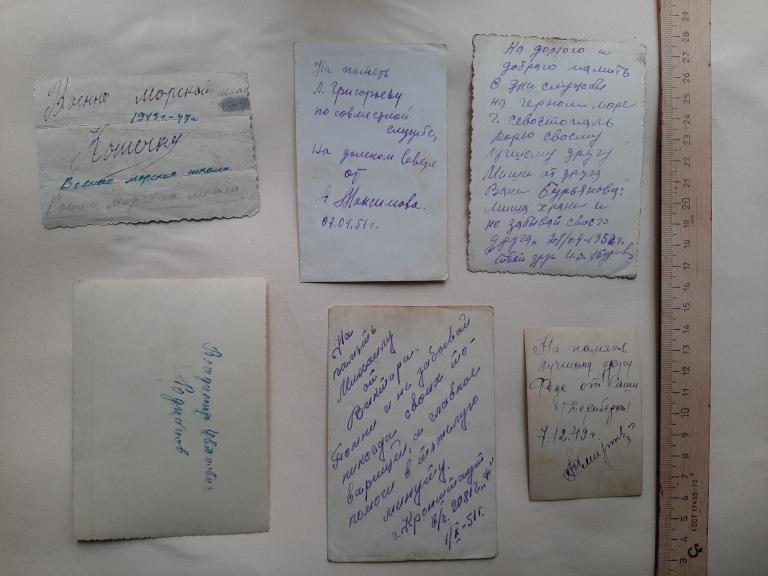 Военно морской
1945г-47г
Военно морская школа
Военно морская школа
На память
Л. Григорьеву
по совместной
службе,
На далеком Севере
от
А Максимова.
07.04.51г.
На долгую и
добрую память
в дни службы
на черном море
г. Севостополь
Дарю своему
Лучшему другу
Миши от друга
Вани Бурьянова:
Миша храни и
не забывай своего
друга,, 28/04-1952г.
твой друг
Владимир
На
память
Михаилу
от
Виктора.
Помни и не забывай
никогда своих то-
варищей, а главное
помоги в тяжелую
минуту.
г. Кронштадт
в/ч. 20816 "Ф"
1/X-51г.
На память
лучшему другу
Феде от Саши
7.12.49г.
29
28
27
26
25
24
23
22
21
20
19
18
17
16
15
14
13
12
11
10
9
8
7
6
5
ГОСТ 17435-72